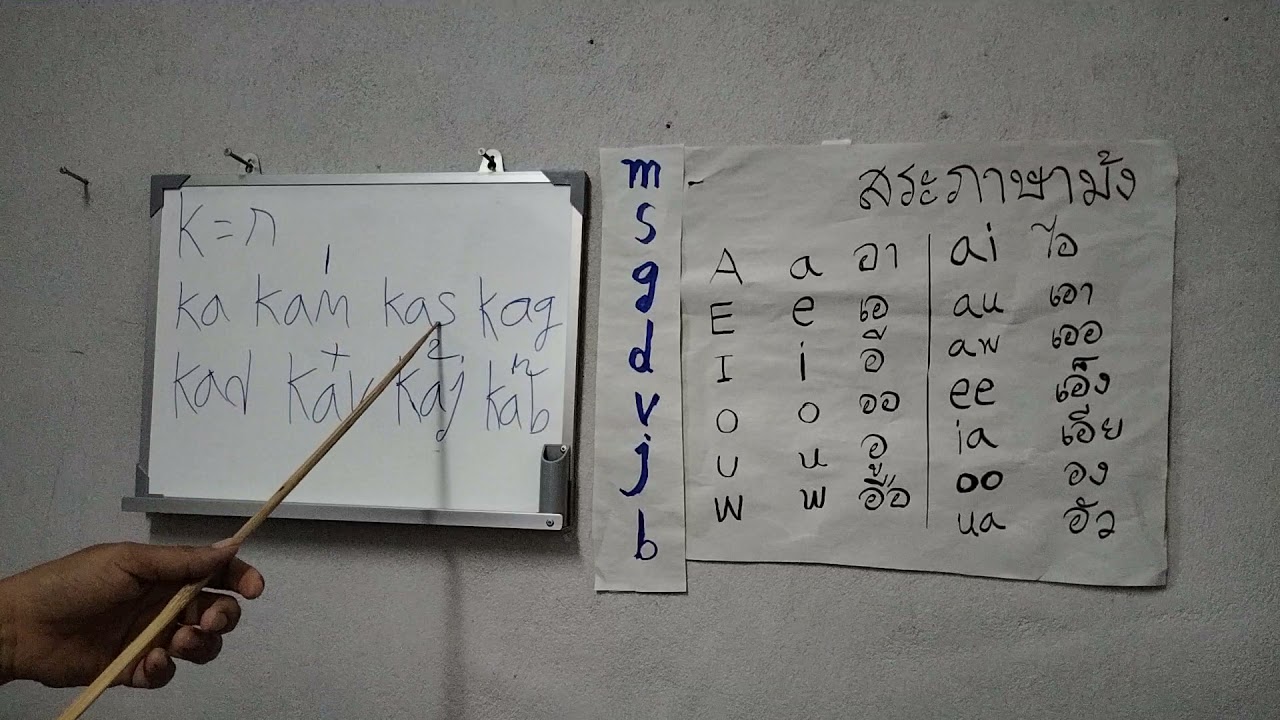 K = ก
ka kam kas kag
kad kav kaj kab
m
s
g
d
v
j
b
สระภาษาม้ง
A a อา ai ไอ
E e เอ au เอา
I i อี aw เออ
O o ออ ee เอ็ง
U u อู ia เอีย
W w อือ oo อง
ua อัว